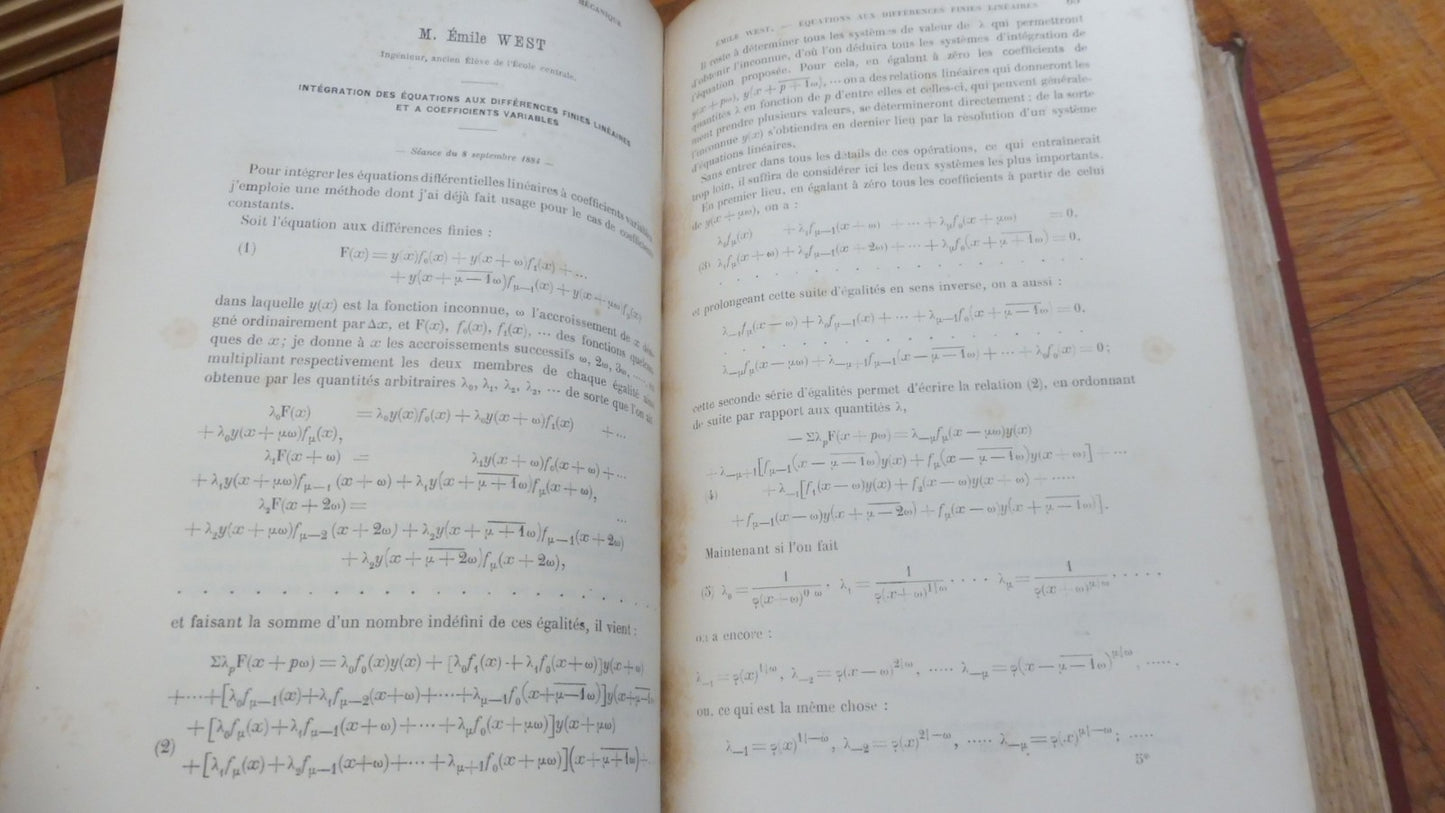 MÉCANIQUE
M. Émile WEST
Ingénieur, ancien élève de l'École centrale.
INTÉGRATION DES ÉQUATIONS AUX DIFFÉRENCES FINIES LINÉAIRES
ET A COEFFICIENTS VARIABLES
— Séance du 8 septembre 1884 —
Pour intégrer les équations différentielles linéaires à coefficients variables
j'emploie une méthode dont j'ai déjà fait usage pour le cas de coefficients
constants.
Soit l'équation aux différences finies :
(1) F(x) = y(x)f₀(x) + y(x + ω)f₁(x) + ...
+ y(x + μ̅ ̅—̅ ̅1̅ω)f_μ—1(x) + y(x + μω)f_μ(x)
dans laquelle y(x) est la fonction inconnue, ω l'accroissement de x
gné ordinairement par Δx, et F(x), f₀(x), f₁(x), ... des fonctions
ques de x; je donne à x les accroissements successifs ω, 2ω, 3ω, ...
multipliant respectivement les deux membres de chaque égalité ainsi
obtenue par les quantités arbitraires λ₀, λ₁, λ₂, λ₂, ... de sorte que l'on ait
λ₀F(x) = λ₀y(x)f₀(x) + λ₀y(x + ω)f₁(x) + ...
+ λ₀y(x + μω)f_μ(x),
λ₁F(x + ω) = λ₁y(x + ω)f₀(x + ω) + ...
+ λ₁y(x + μω)f_μ—1 (x + ω) + λ₁y(x + μ̅ ̅+̅ ̅1̅ω)f_μ(x + ω),
λ₂F(x + 2ω) = ...
+ λ₂y(x + μω)f_μ—2 (x + 2ω) + λ₂y(x + μ̅ ̅+̅ ̅1̅ω)f_μ—1(x + 2ω)
+ λ₂y(x + μ̅ ̅+̅ ̅2̅ω)f_μ(x + 2ω),
. . . . . . . . . . . . . . . . . .
et faisant la somme d'un nombre indéfini de ces égalités, il vient :
Σλ_pF(x + pω) = λ₀f₀(x)y(x) + [λ₀f₁(x) + λ₁f₀(x + ω)]y(x + ω)
+ ... + [λ₀f_μ—1(x) + λ₁f_μ—2(x + ω) + ... + λ_μ—1f₀(x + μ̅—̅1̅ω)]y(x + μ̅—̅1̅ω)
+ [λ₀f_μ(x) + λ₁f_μ—1(x + ω) + ... + λ_μf₀(x + μω)]y(x + μω)
(2) + [λ₁f_μ(x) + λ₂f_μ—1(x + ω) + ... + λ_μ+1f₀(x + μω)](x + μ̅+̅1̅ω) + ...
ÉMILE WEST. — ÉQUATIONS AUX DIFFÉRENCES FINIES LINÉAIRES
Il reste à déterminer tous les systèmes de valeur de λ qui permettront
d'obtenir l'inconnue, d'où l'on déduira tous les systèmes d'intégration de
l'équation proposée. Pour cela, en égalant à zéro les coefficients de
y(x + pω), y(x + p̅ ̅+̅ ̅1̅ω), ... on a des relations linéaires qui donneront les
quantités λ en fonction de p d'entre elles et celles-ci, qui peuvent générale-
ment prendre plusieurs valeurs, se détermineront directement ; de la sorte
l'inconnue y(x) s'obtiendra en dernier lieu par la résolution d'un système
d'équations linéaires.
Sans entrer dans tous les détails de ces opérations, ce qui entraînerait
trop loin, il suffira de considérer ici les deux systèmes les plus importants.
En premier lieu, en égalant à zéro tous les coefficients à partir de celui
de y(x + μω), on a :
λ₀f_μ(x) + λ₁f_μ—1(x + ω) + ... + λ_μf₀(x + μω) = 0,
(3) λ₁f_μ(x + ω) + λ₂f_μ—1(x + 2ω) + ... + λ_μf₀(x + μ̅ ̅+̅ ̅1̅ω) = 0,
. . . . . . . . . . . . . .
et prolongeant cette suite d'égalités en sens inverse, on a aussi :
λ—1f_μ(x — ω) + λ₀f_μ—1(x) + ... + λ_μ—1f₀(x + μ̅ ̅—̅ ̅1̅ω) = 0,
. . . . . . . . . . . . . .
λ—μf_μ(x — μω) + λ—μ+1f_μ—1(x — μ̅ ̅—̅ ̅1̅ω) + ... + λ₀f₀(x) = 0;
cette seconde série d'égalités permet d'écrire la relation (2), en ordonnant
de suite par rapport aux quantités λ,
— Σλ_pF(x + pω) = λ—μf_μ(x — μω)y(x)
+ λ—μ+1[f_μ—1(x — μ̅ ̅—̅ ̅1̅ω)y(x) + f_μ(x — μ̅ ̅—̅ ̅1̅ω)y(x + ω)] + ...
(4) + λ—1[f₁(x — ω)y(x) + f₂(x — ω)y(x + ω) + .....
+ f_μ—1(x — ω)y(x + μ̅ ̅—̅ ̅2̅ω) + f_μ(x — ω)y(x + μ̅ ̅—̅ ̅1̅ω)].
Maintenant si l'on fait
(5) λ₀ = 1/φ(x + ω)^0|ω . λ₁ = 1/φ(x + ω)^1|ω .... λ_μ = 1/φ(x + ω)^μ|ω .....
on a encore :
λ—1 = φ(x)^1|ω, λ—2 = φ(x — ω)^2|ω, ..... λ—μ = φ(x — μ̅ ̅—̅ ̅1̅ω)^μ|ω, .....
ou, ce qui est la même chose :
λ—1 = φ(x)^1|—ω, λ—2 = φ(x)^2|—ω, ..... λ—μ = φ(x)^μ|—ω; .....
5*